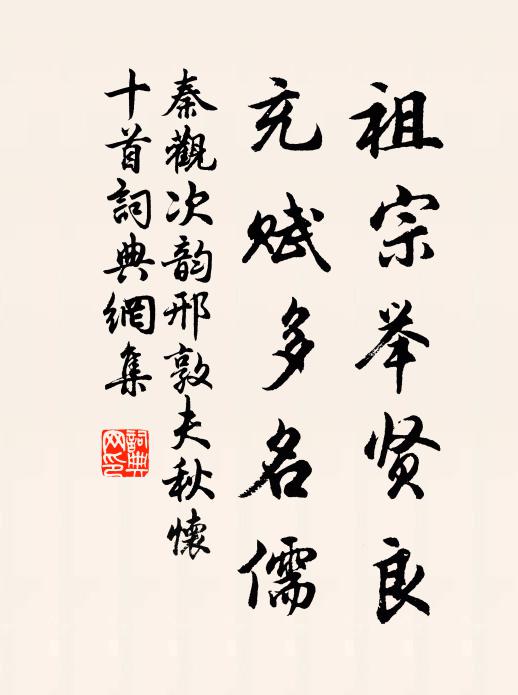 祖宗举贤良
充赋多名儒
秦觀次韵邢敦夫秋懷
十首詞典網集
詞典網印